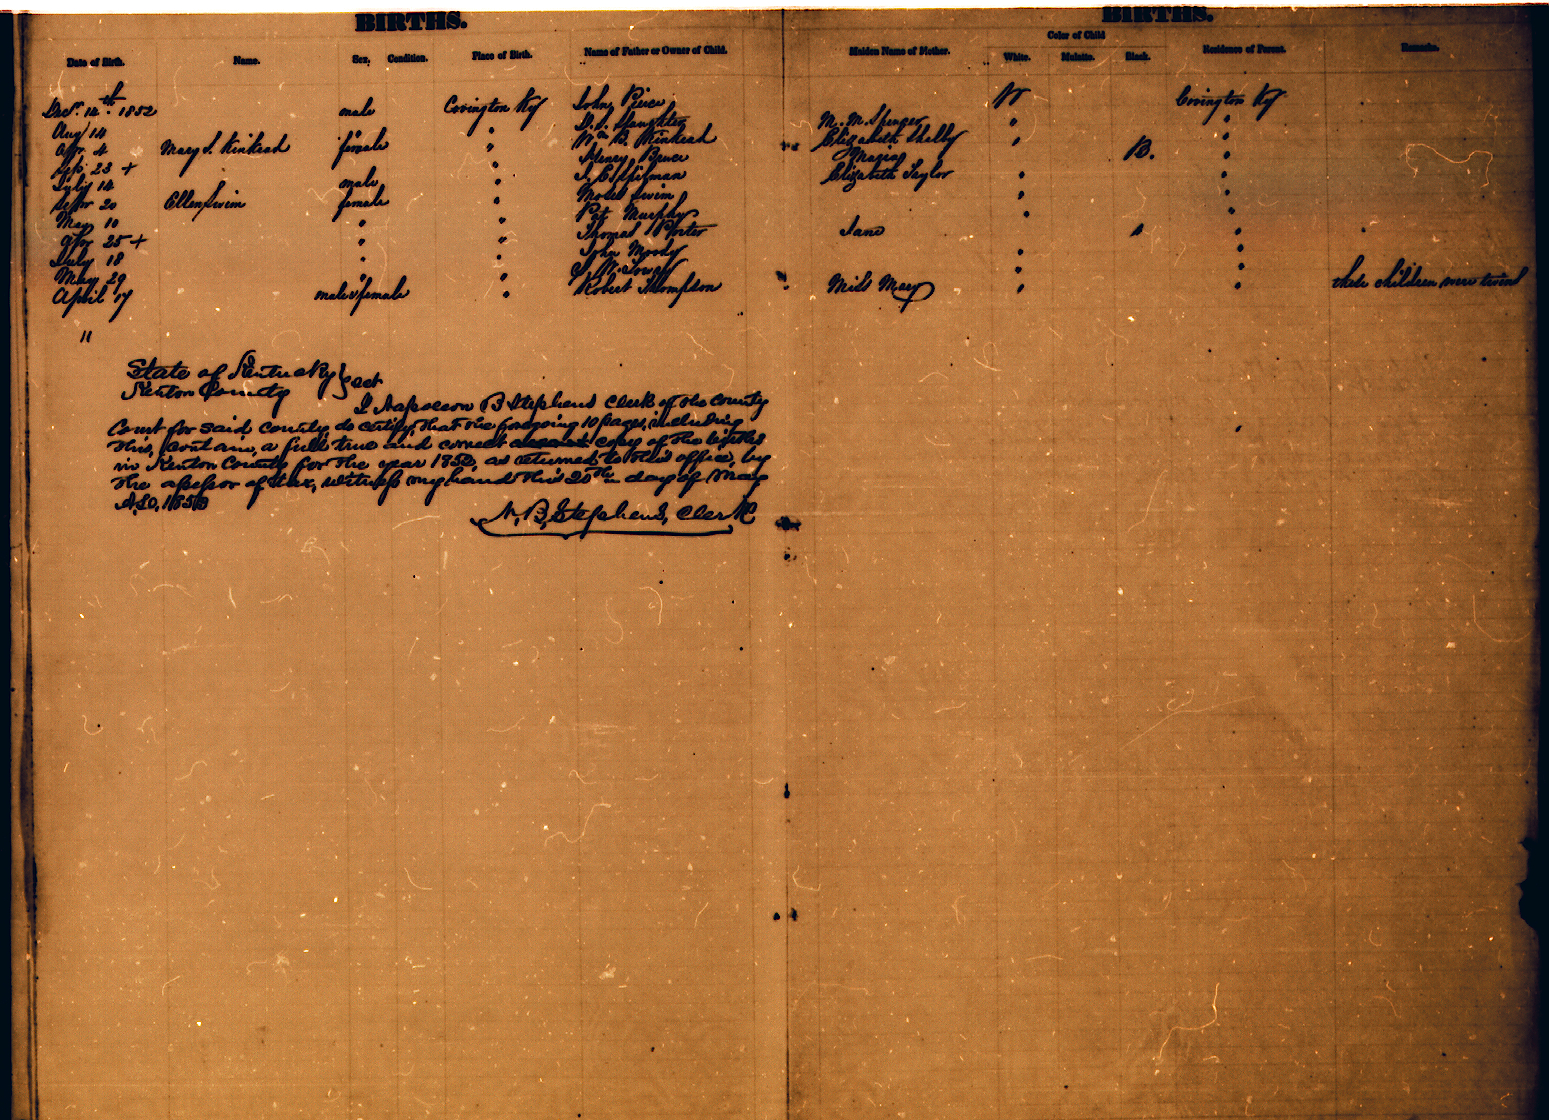 BIRTHS. BIRTHS.
Color of Child
Date of Birth. Name. Sex. Condition. Place of Birth. Name of Father or Owner of Child. Maiden Name of Mother. White. Mulatto. Black. Residence of Parent. Remarks.
Decr. 14th 1852 male Covington Ky John Pierce W Covington Ky
Aug 14 " " Slaughter M. M. Spenger " "
Apr. 4 Mary S. Kinkead female " Wm B. Kinkead Elizabeth Shelby " "
23 + " " Henry Bruce Maria B. "
July 14 male " Spilman Elizabeth Taylor " "
Sepr 20 Ellen Swim female " Moses Swim " "
May 10 " " Pat Murphy " "
25 + " " Thomas Porter Jane " "
July 18 " " John Moody " "
May 29 " " " "
April 17 male & female " Robert Thompson Miss May " " these children were twins
11
State of Kentucky } sct
Kenton County
I Napoleon B Stephens Clerk of the County
Court for said County, do certify, that the foregoing 10 pages, including
this, Contain, a full true and correct copy of the births
in Kenton County for the year 1852, as returned to this office, by
the assessor of tax, witness my hand this 20th day of May
A.D. 1853
N, B, Stephens, Clerk